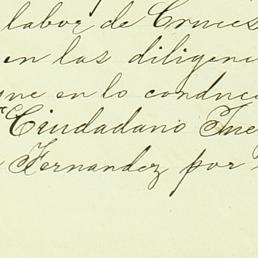 labor de Cruces
en las diligenci
que en lo conduce
Ciudadano Jue
Fernandez por